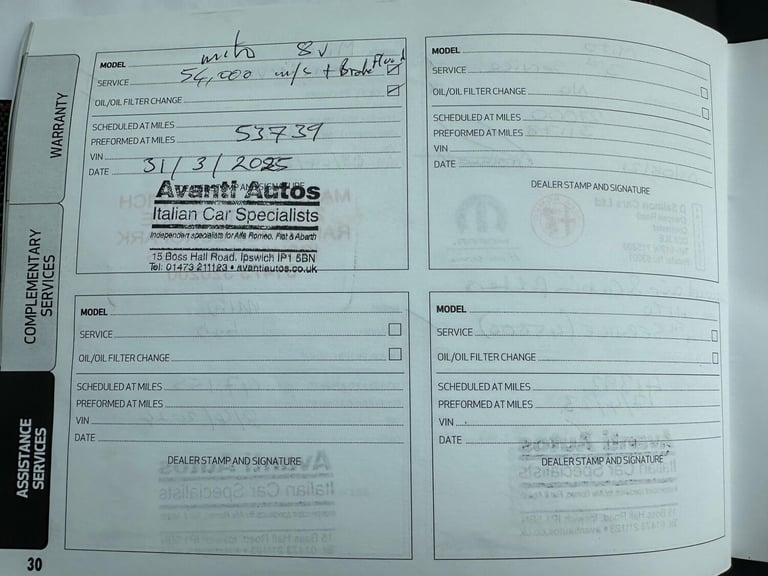 WARRANTY
COMPLEMENTARY
SERVICES
ASSISTANCE
SERVICES
30
MODEL mito 8v
SERVICE 54,000 m/s + Brake Fluid
OIL/OIL FILTER CHANGE
SCHEDULED AT MILES
PREFORMED AT MILES 53739
VIN
DATE 31/3/2025
DEALER STAMP AND SIGNATURE
Avanti Autos
Italian Car Specialists
Independent specialists for Alfa Romeo, Fiat & Abarth
15 Boss Hall Road, Ipswich IP1 5BN
Tel: 01473 211123 • avantiautos.co.uk
MODEL
SERVICE
OIL/OIL FILTER CHANGE
SCHEDULED AT MILES
PREFORMED AT MILES
VIN
DATE
DEALER STAMP AND SIGNATURE
MODEL
SERVICE
OIL/OIL FILTER CHANGE
SCHEDULED AT MILES
PREFORMED AT MILES
VIN
DATE
DEALER STAMP AND SIGNATURE
MODEL
SERVICE
OIL/OIL FILTER CHANGE
SCHEDULED AT MILES
PREFORMED AT MILES
VIN
DATE
DEALER STAMP AND SIGNATURE